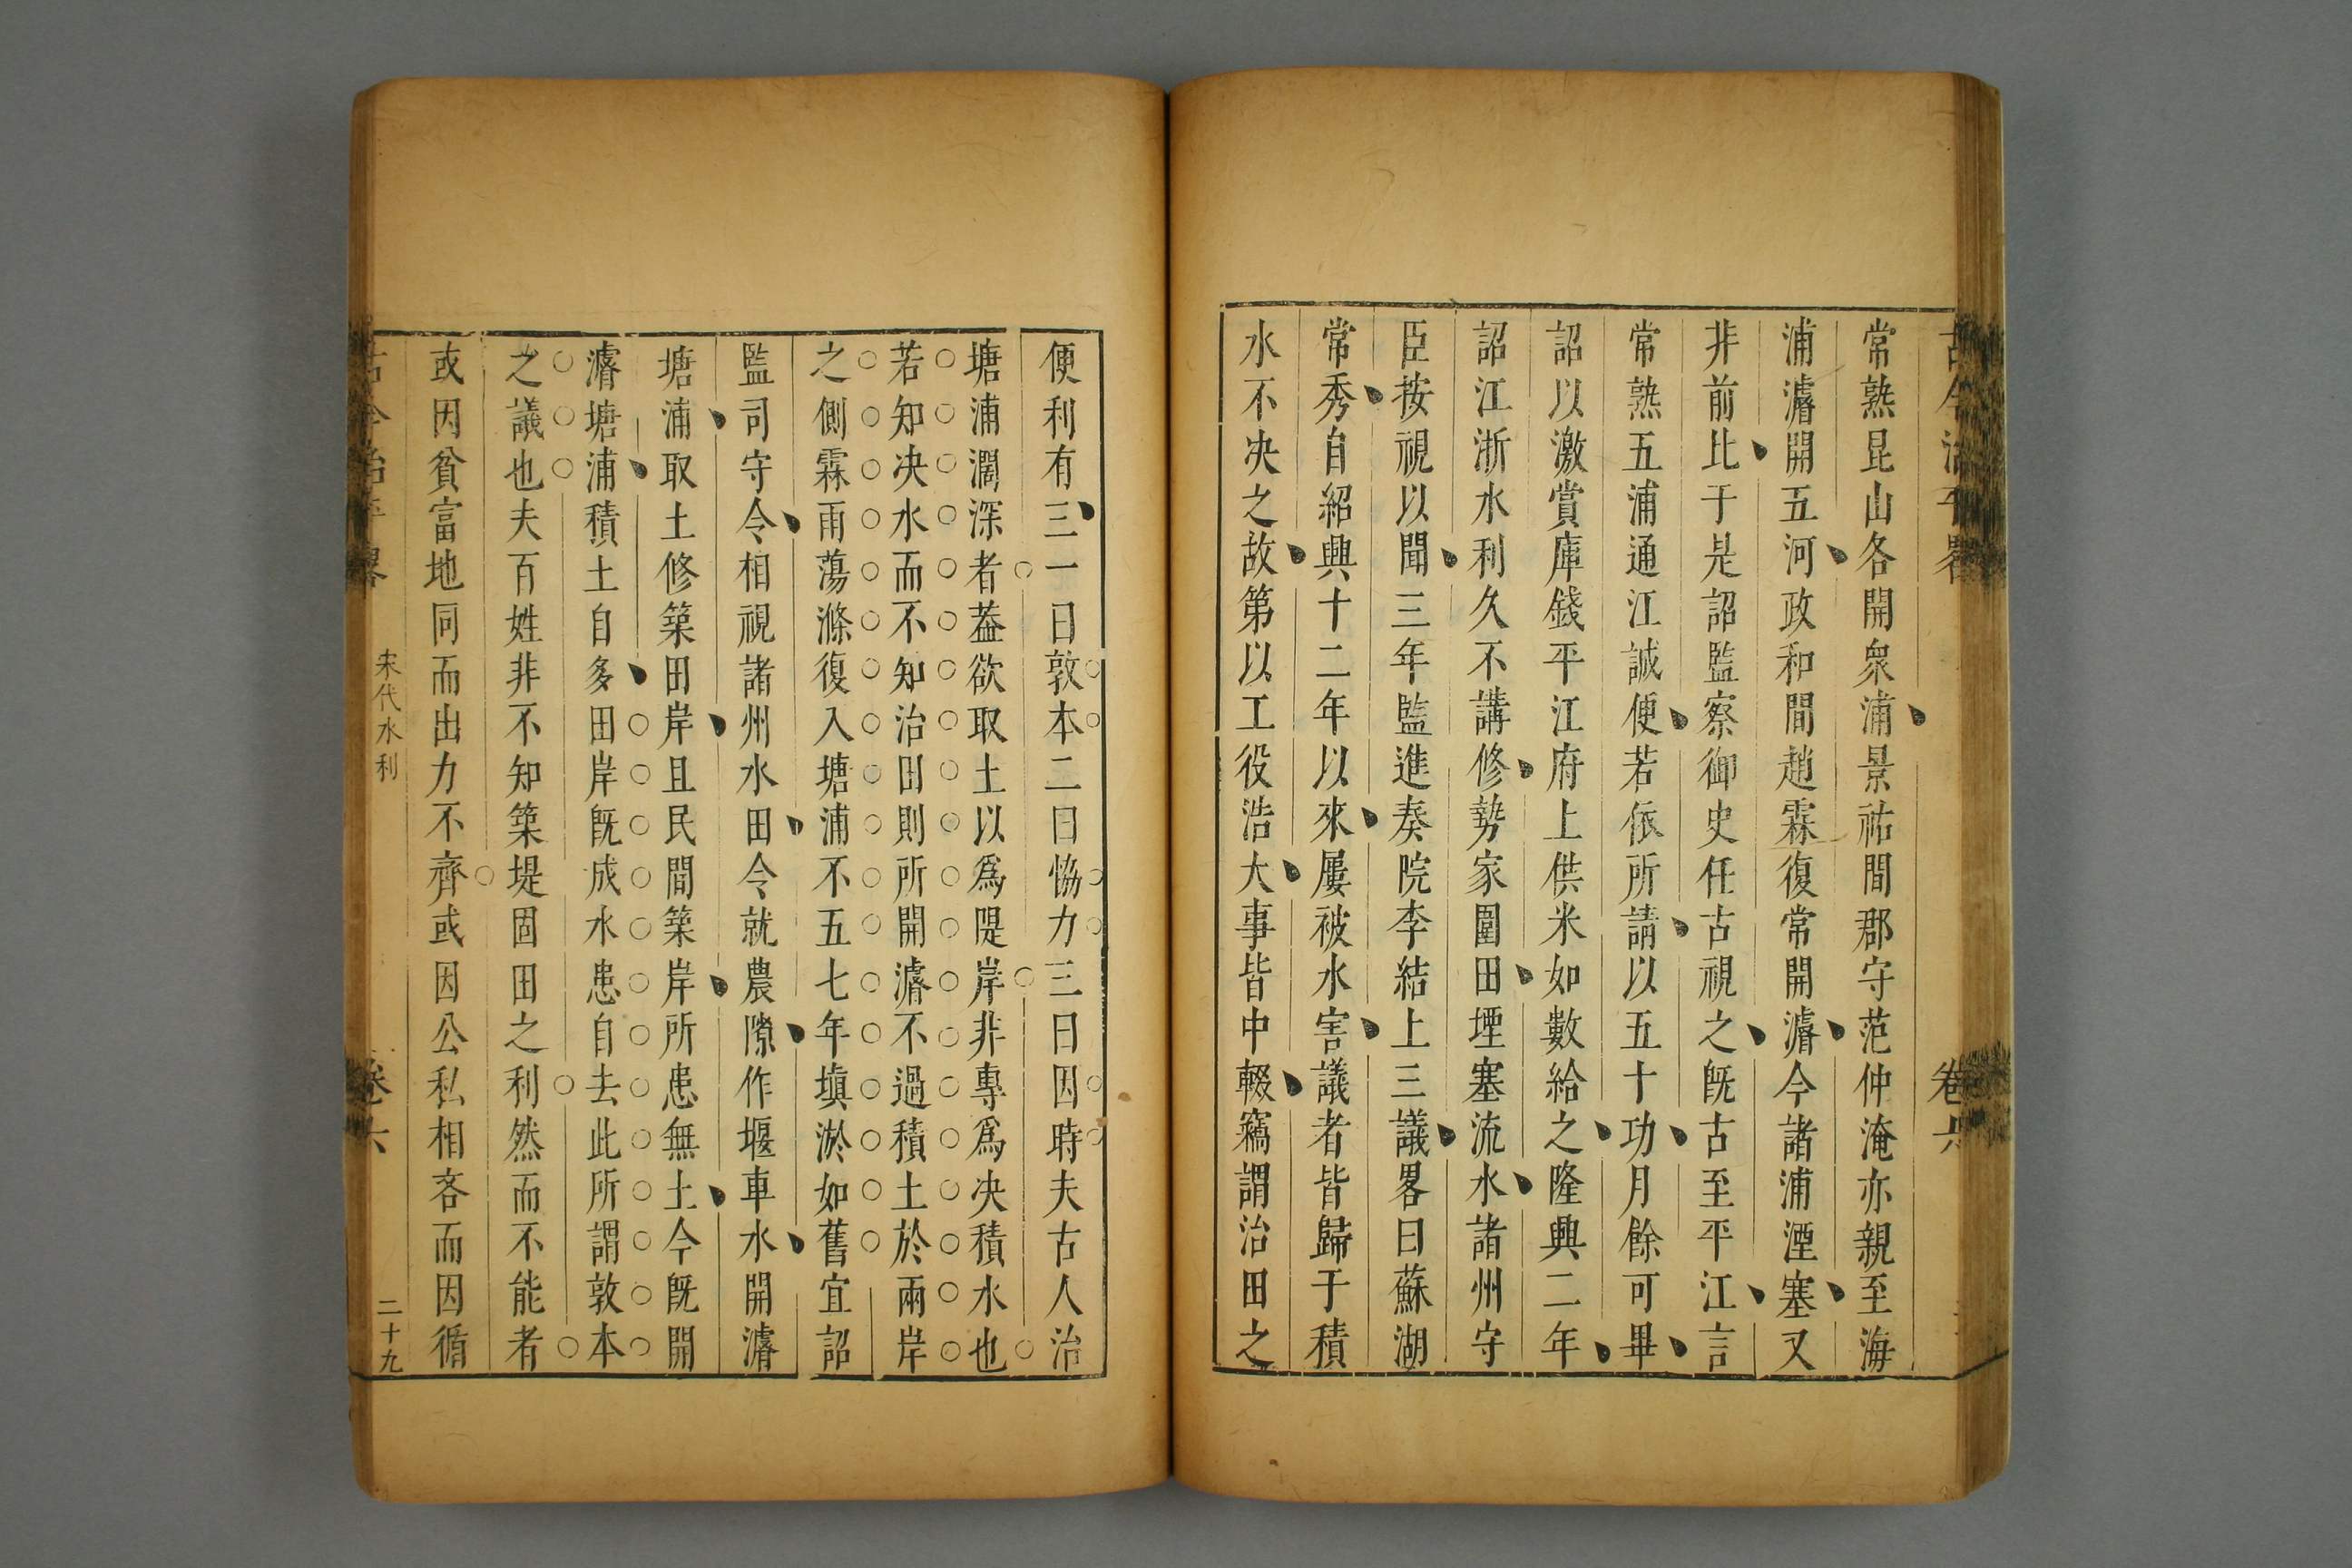 古今治平畧
卷六
常熟昆山各開衆浦景祐間郡守范仲淹亦親至海
浦濬開五河政和間趙霖復常開濬今諸浦湮塞又
非前比于是詔監察御史任古視之旣古至平江言
常熟五浦通江誠便若依所請以五十功月餘可畢
詔以激賞庫錢平江府上供米如數給之隆興二年
詔江浙水利久不講修勢家圍田堙塞流水諸州守
臣按視以聞三年監進奏院李結上三議畧曰蘇湖
常秀自紹興十二年以來屢被水害議者皆歸于積
水不决之故第以工役浩大事皆中輟竊謂治田之
便利有三一曰敦本二曰恊力三曰因時夫古人治
塘浦濶深者葢欲取土以爲隄岸非專爲决積水也
若知决水而不知治田則所開濬不過積土於兩岸
之側霖雨蕩滌復入塘浦不五七年塡淤如舊宜詔
監司守令相視諸州水田令就農隙作堰車水開濬
塘浦取土修築田岸且民間築岸所患無土今旣開
濬塘浦積土自多田岸旣成水患自去此所謂敦本
之議也夫百姓非不知築堤固田之利然而不能者
或因貧富地同而出力不齊或因公私相吝而因循
古今治平畧
宋代水利
卷六
二十九